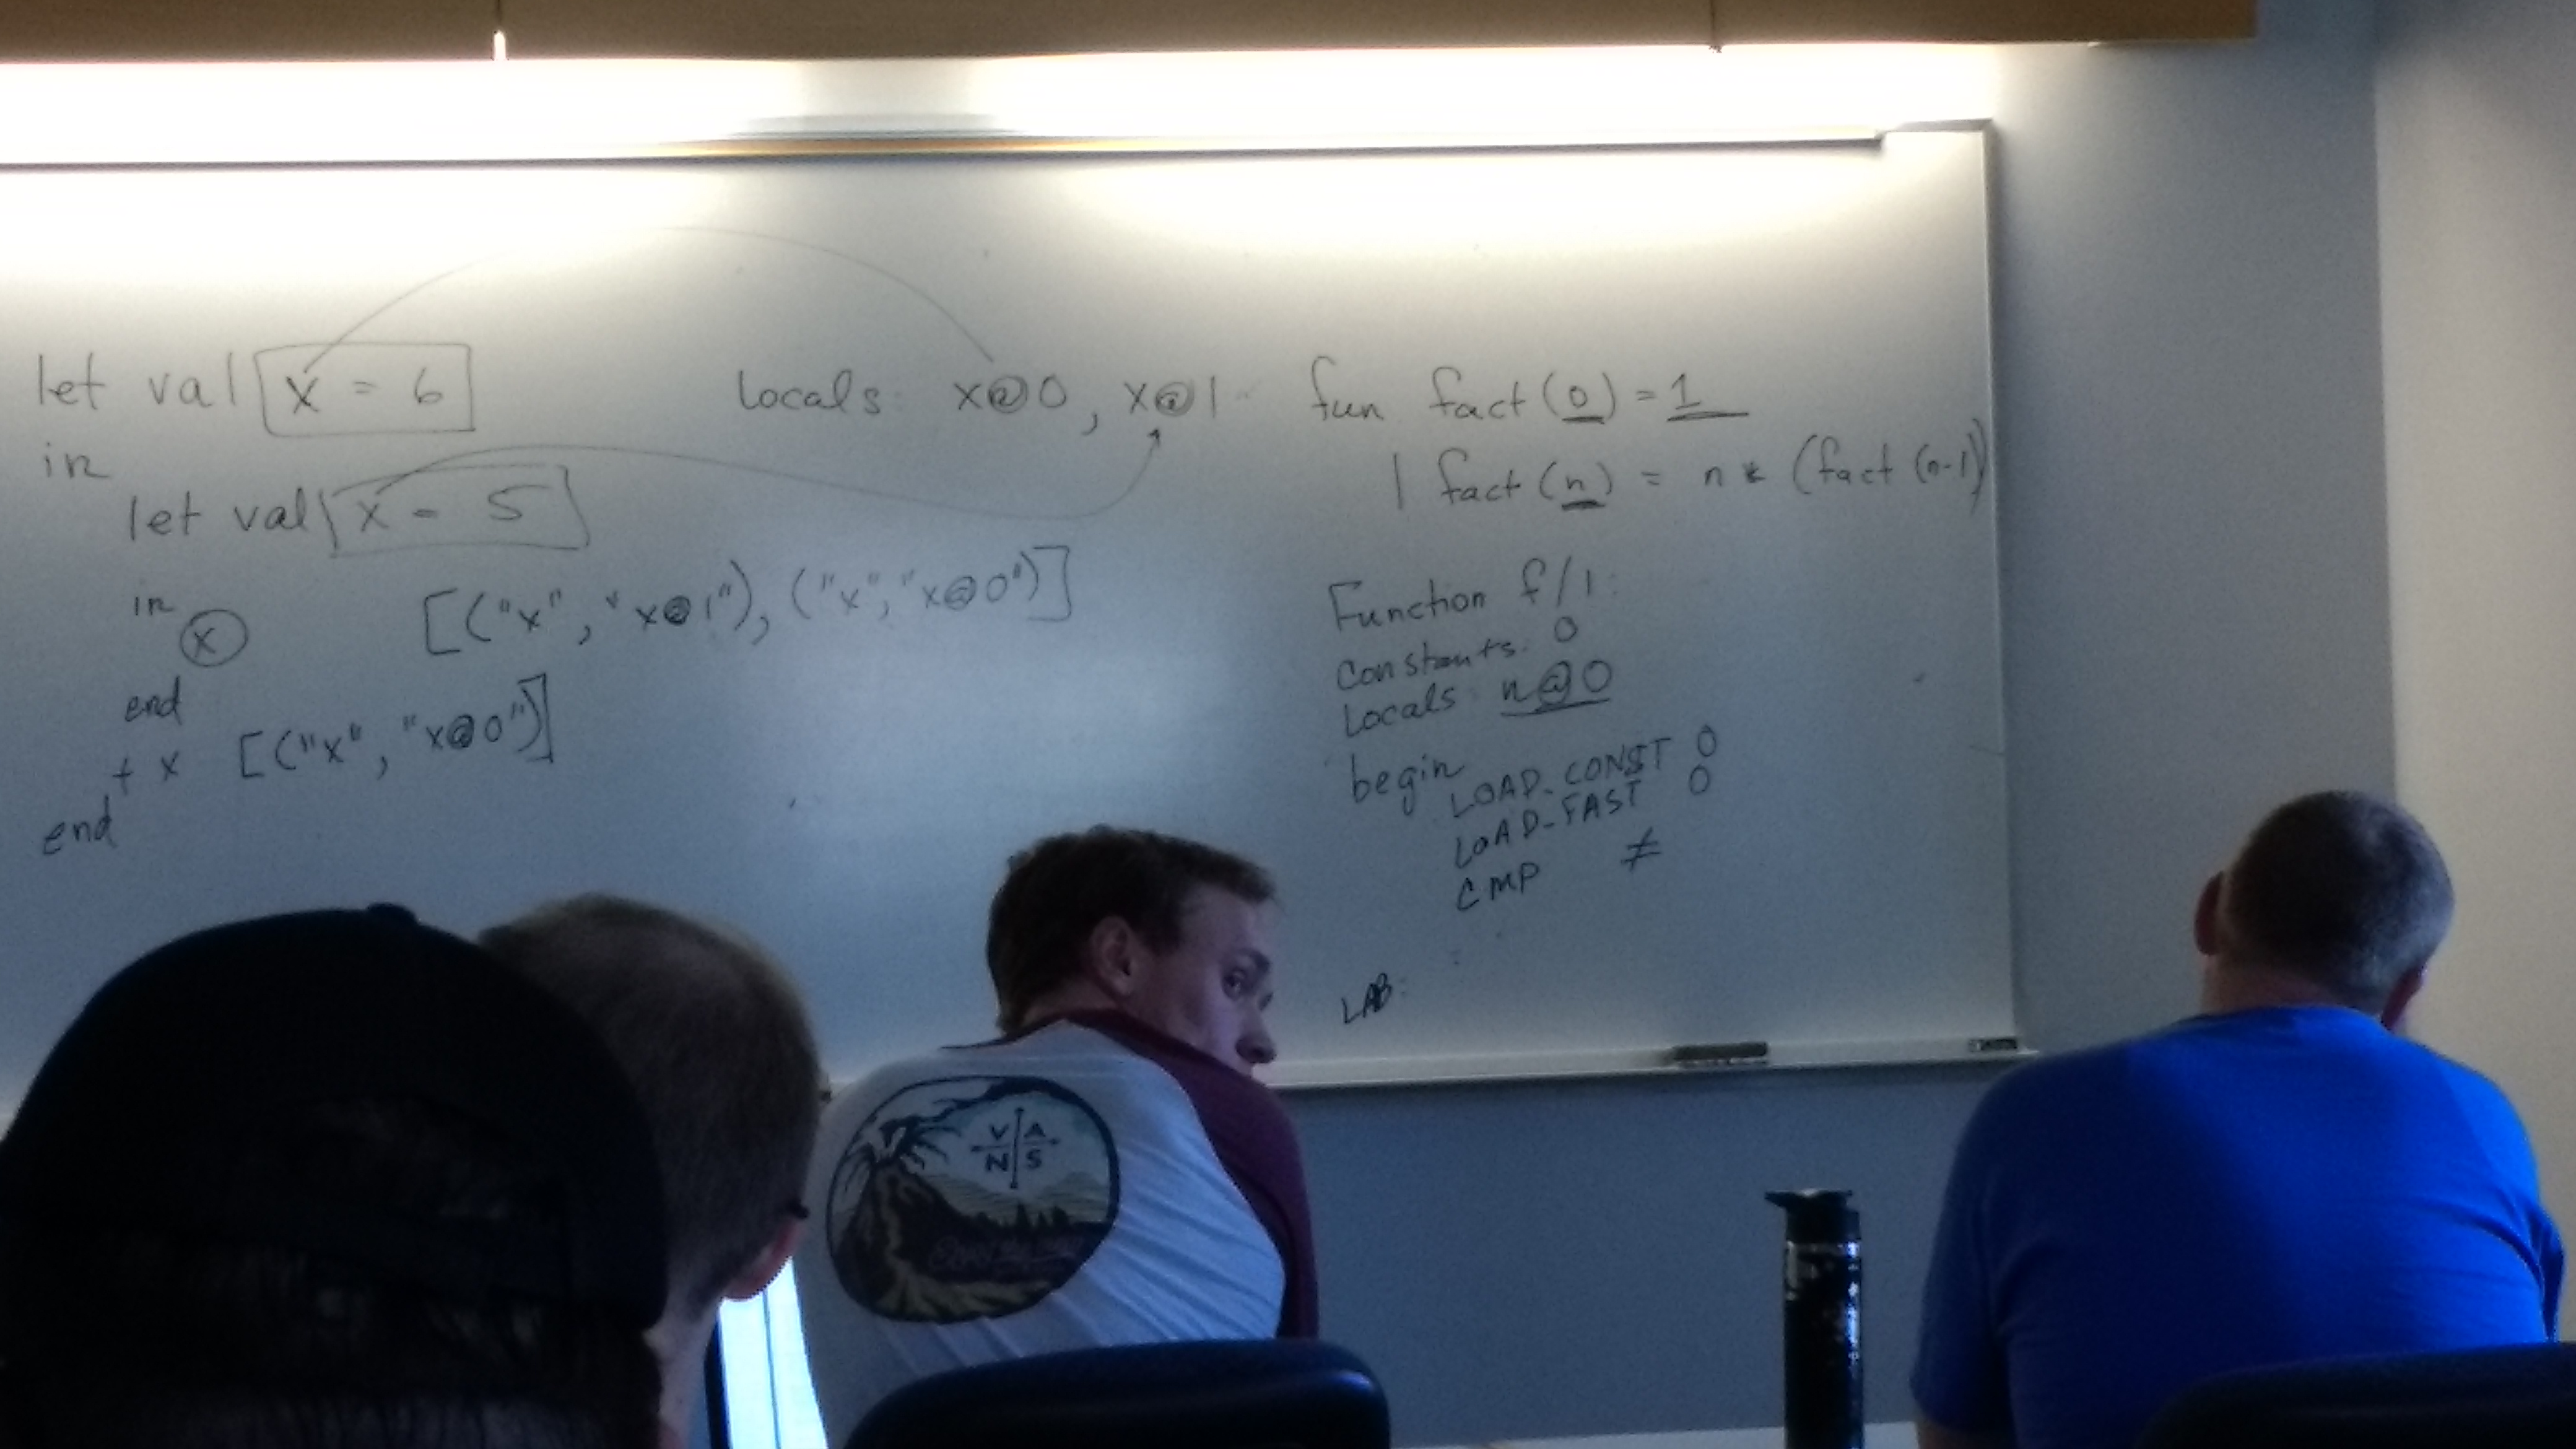 let val x = 6
in
let val x = 5
in
x
end
+ x [("x", "x@0")]
end
Locals: x@0, x@1
[("x", "x@1"), ("x", "x@0")]
fun fact (0) = 1
| fact (n) = n * (fact (n-1))
Function f/1:
Constants: 0
Locals: n@0
begin
LOAD_CONST 0
LOAD_FAST 0
CMP ≠
LAB:
VA
NS